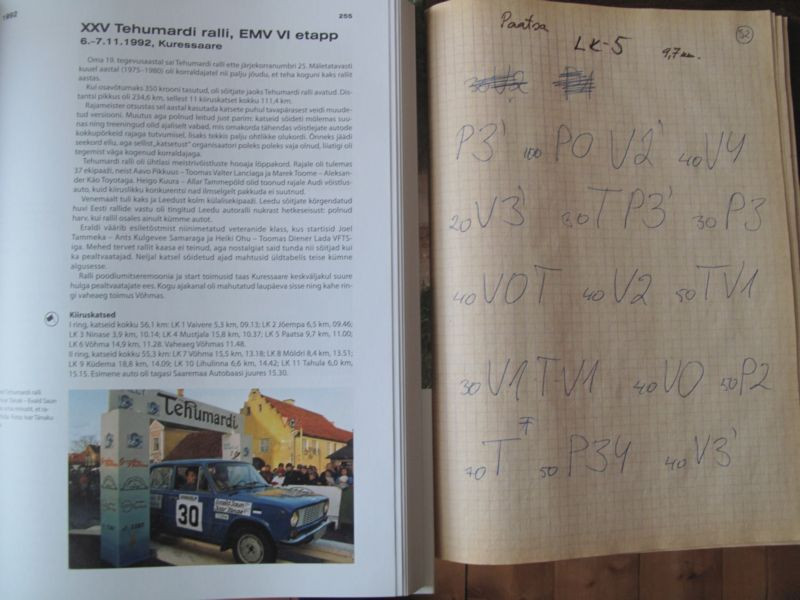 1992
255
XXV Tehumardi ralli, EMV VI etapp
6.–7.11.1992, Kuressaare
Oma 19. tegevusaastal sai Tehumardi ralli ette järjekorranumbri 25. Mäletatavasti
kuuel aastal (1975–1980) oli korraldajatel nii palju jõudu, et teha koguni kaks rallit
aastas.
Kui osavõtumaks 350 krooni tasutud, oli sõitjate jaoks Tehumardi ralli avatud. Dis-
tantsi pikkus oli 234,6 km, sellest 11 kiiruskatset kokku 111,4 km.
Rajameister otsustas sel aastal kasutada katsete puhul tavapärasest veidi muude-
tud versiooni. Muutus aga polnud leitud just parim: katseid sõideti mõlemas suu-
nas ning treeningud olid ajaliselt vabad, mis omakorda tähendas võistlejate autode
kokkupõrkeid rajaga tutvumisel, lisaks tekkis palju ohtlikke olukordi. Õnneks jäädi
seekord ellu, aga sellist „katsetust" organisaatori poleks poleks vaja olnud, liiatigi oli
tegemist väga kogenud korraldajaga.
Tehumardi ralli oli ühtlasi meistrivõistluste hooaja lõppakord. Rajale oli tulemas
37 ekipaaži, neist Aavo Pikkuus – Toomas Valter Lanciaga ja Marek Toome – Aleksan-
der Käo Toyotaga. Heigo Kuura – Allar Tammepõld olid toonud rajale Audi võistlus-
auto, kuid kiiruslikku konkurentsi nad ilmselgelt pakkuda ei suutnud.
Venemaalt tuli kaks ja Leedust kolm külalisekipaaži. Leedu sõitjate kõrgendatud
huvi Eesti rallide vastu oli tingitud Leedu autoralli nukrast hetkeseisust: polnud
harv, kui rallil osales ainult kümme autot.
Eraldi väärib esiletõstmist niinimetatud veteranide klass, kus startisid Joel
Tammeka – Ants Kulgevee Samaraga ja Heiki Ohu – Toomas Diener Lada VFTS-
iga. Mehed tervet rallit kaasa ei teinud, aga nostalgiat said tunda nii sõitjad kui
ka pealtvaatajad. Neljal katsel sõidetud ajad mahtusid üldtabelis teise kümne
algusesse.
Ralli poodiumitseremoonia ja start toimusid taas Kuressaare keskväljakul suure
hulga pealtvaatajatе ees. Kogu ajakanal oli mahutatud laupäeva sisse ning kahe rin-
gi vaheaeg toimus Võhmas.
Kiiruskatsed
I ring, katseid kokku 56,1 km: LK 1 Vaivere 5,3 km, 09.13; LK 2 Jõempa 6,5 km, 09.46;
LK 3 Ninase 3,9 km, 10.14; LK 4 Mustjala 15,8 km, 10.37; LK 5 Paatsa 9,7 km, 11.00;
LK 6 Võhma 14,9 km, 11.28. Vaheaeg Võhmas 11.48.
II ring, katseid kokku 55,3 km: LK 7 Võhma 15,5 km, 13.18; LK 8 Möldri 8,4 km, 13.51;
LK 9 Küdema 18,8 km, 14.09; LK 10 Lihulinna 6,6 km, 14.42; LK 11 Tahula 6,0 km,
15.15. Esimene auto oli tagasi Saaremaa Autobaasi juures 15.30.
Tehumardi
30
Paatsa
52
LK-5
9,7 km.
P3' 100 P0 V2' 40 V4
20 V3' 80 T P3' 30 P3
40 V0T 40 V2 50 TV1
30 V1 TV1 40 V0 50 P2
70 T 7 50 P34 40 V3'